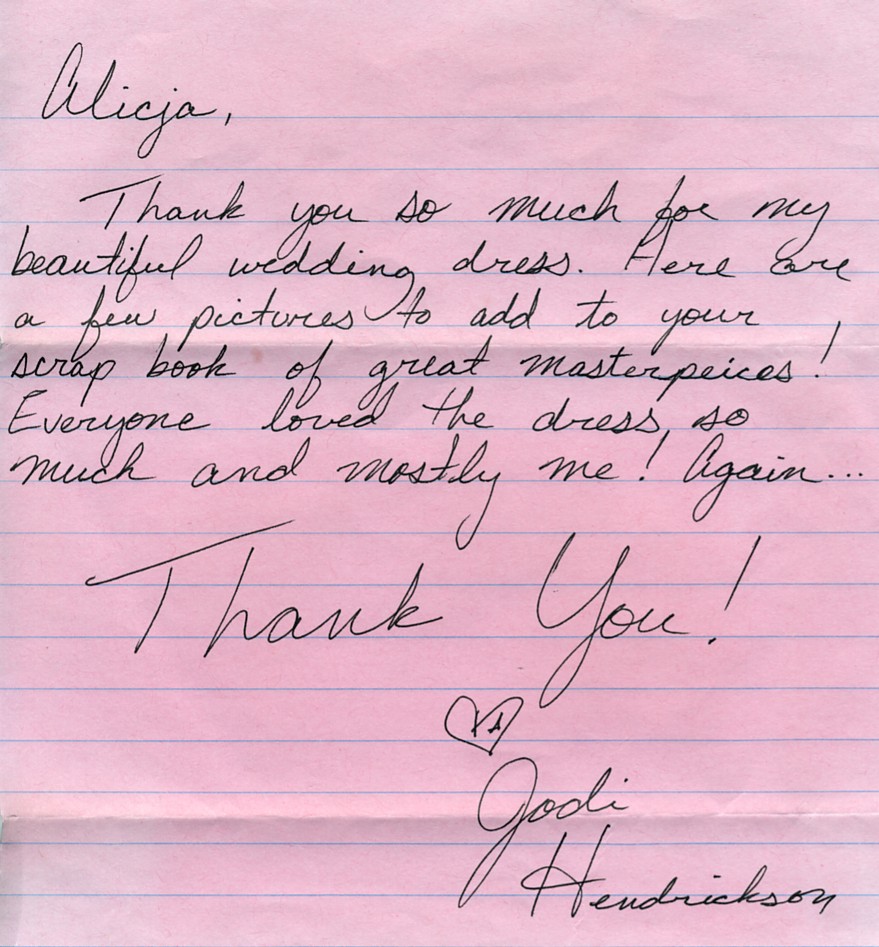 Alicja,
Thank you so much for my
beautiful wedding dress. Here are
a few pictures to add to your
scrap book of great masterpeices!
Everyone loved the dress, so
much and mostly me! Again...
Thank You!
Jodi
Hendrickson